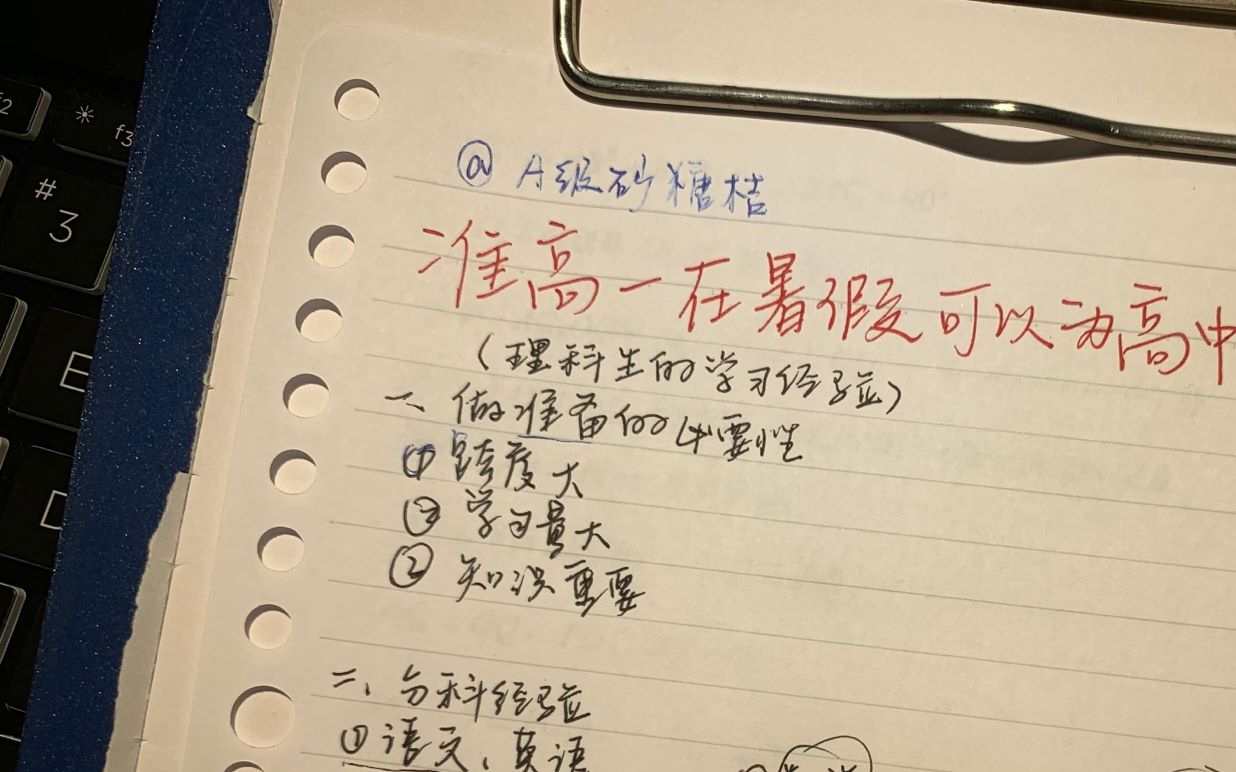 @A级砂糖桔
准高一在暑假可以为高中
(理科生的学习经验)
一、做准备的必要性
① 跨度大
③ 学习量大
② 知识重要
二、分科经验
① 语文、英语
f2
f3
#
3
E
D